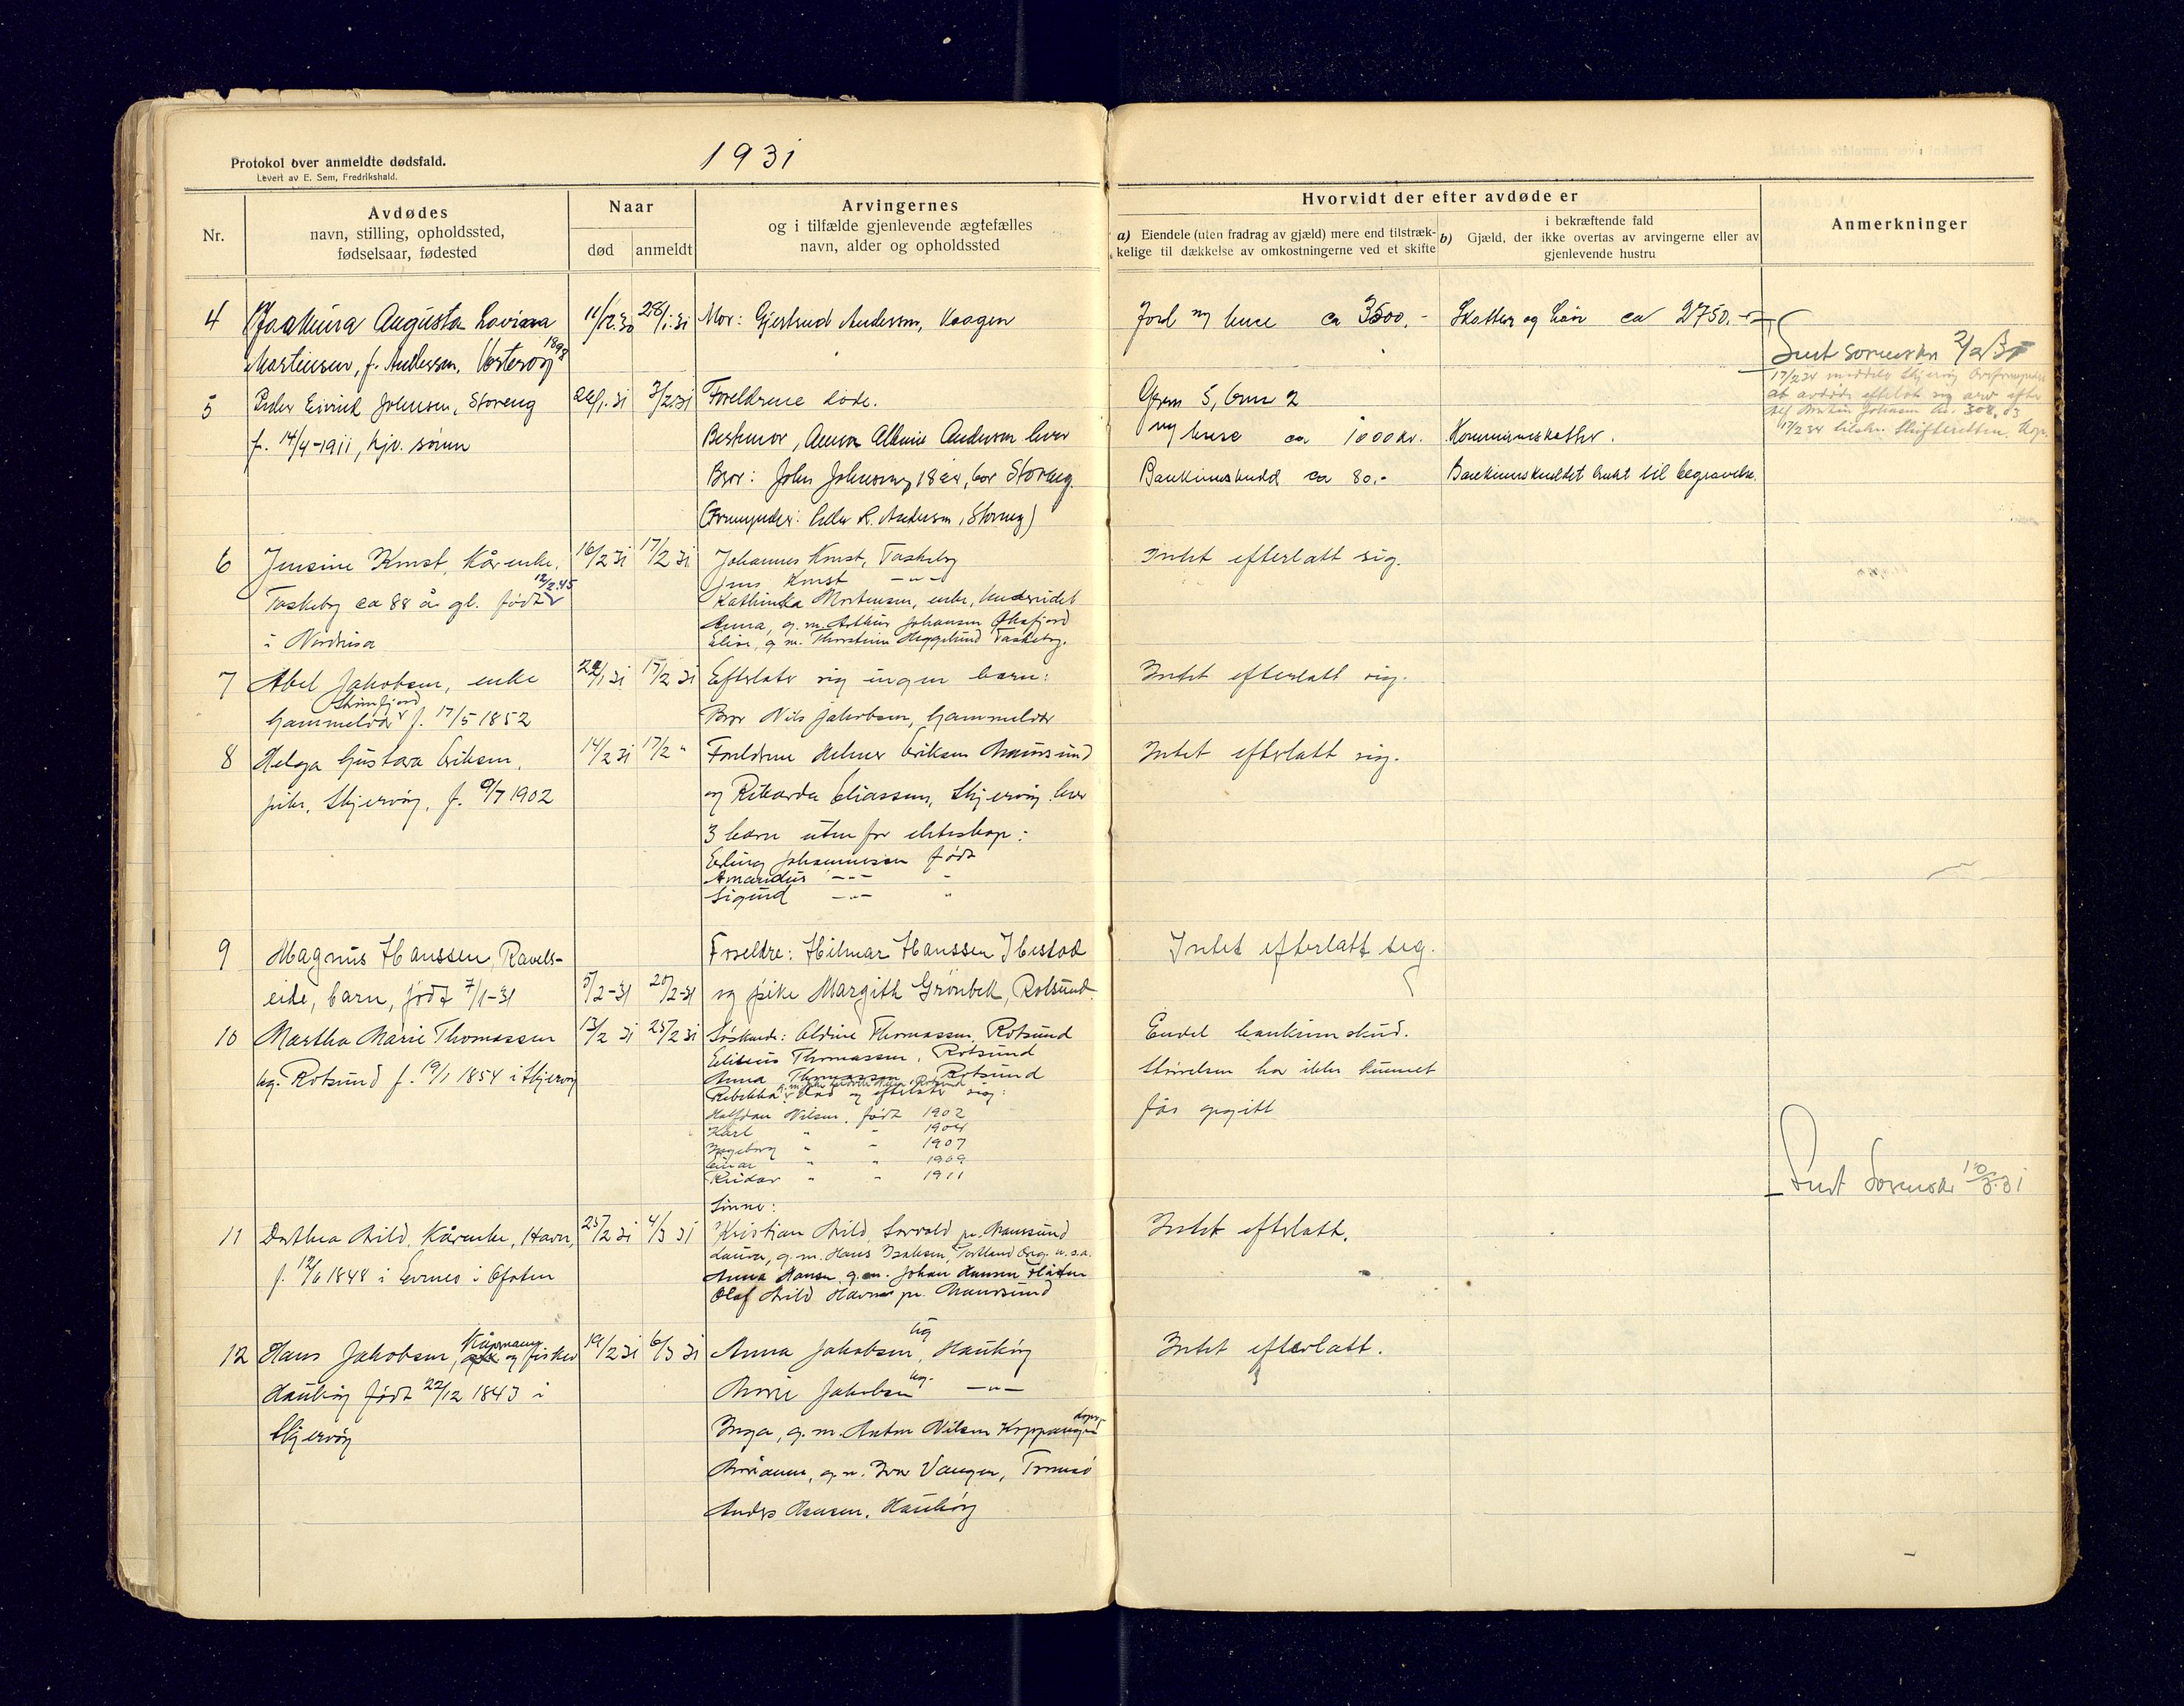 1931
Protokol over anmeldte dødsfald.
Levert av E. Sem, Fredrikshald.
Nr.
Avdødes
navn, stilling, opholdssted,
fødselsaar, fødested
Naar
død
anmeldt
Arvingernes
og i tilfælde gjenlevende ægtefælles
navn, alder og opholdssted
Hvorvidt der efter avdøde er
a) Eiendele (uten fradrag av gjæld) mere end tilstræk-
kelige til dækkelse av omkostningerne ved et skifte
i bekræftende fald
b) Gjæld, der ikke overtas av arvingerne eller av
gjenlevende hustru
Anmerkninger
4 Augusta Lovisa 11/12.30 28/1.31 Mor: Gjertrud Andersen, Kaagen Jord og huse ca 3500.- Skatter og lån ca 2750.-
Martinsen, f. Andersen, 1898
Sendt sorenskr 2/2 31
5 Peder Eivind Johnsen, Storeng 26/1.31 3/2.31 Foreldrene døde. Grnr 5, brnr 2
f. 14/4-1911, hjv. sønn
Bestemor, Anna Albine Andersen lever og huse ca 1000 kr. Kommuneskatter.
Bror: John Johnsen, 18 år, bor Storeng. Bankinnskudd ca 80.- Bankinnskuddet brukt til begravelse.
(Formynder: Peder R. Andersen, Storeng)
17/2 34 meddeler Skjervøy Overformynderi
at avdøde efterlot sig arv efter
Johnsen kr. 308,03
17/2 34 tilskr. Skifteretten. Kop.
6 Jensine Kmst, kårenke, 16/2 31 17/2 31 Johannes Kmst, Taskeby Intet efterlatt sig.
Jens Kmst -"-
12/2.45
Taskeby ca 88 år gl. født Kathinka Mortensen, enke,
Anna, g. m. Arthur Johansen Oksfjord
i Nordreisa Elise, g. m. Thorstein Heggelund Taskeby.
7 Abel Jakobsen, enke 22/1 31 17/2 31 Efterlater sig ingen barn: Intet efterlatt sig.
Strømfjord
Gammelvær f. 17/5 1852 Bror Nils Jakobsen, Gammelvær
8 Helga Gustava Eriksen, 14/2 31 17/2 " Foreldrene Helmer Eriksen Maursund Intet efterlatt sig.
pike, Skjervøy, f. 9/7 1902 og Rikarda Eliassen, Skjervøy lever
3 barn utenfor ekteskap:
Erling Johannesen født
Amandus -"- "
Sigurd -"- "
9 Magnus Hanssen, Ravels- Foreldre: Hilmar Hanssen Ibestad Intet efterlatt seg.
eide, barn, født 7/1-31 5/2-31 20/2-31 og pike Margith Grønbek, Rotsund.
10 Martha Marie Thomassen 13/2 31 25/2 31 Søskende: Aldine Thomassen, Rotsund Endel bankinnskud.
Thomassen, Rotsund
ug. Rotsund f. 19/1 1854 i Skjervøy Anna Thomassen, Rotsund Størrelsen har ikke kunnet
Rebekka død og efterlater sig:
Halfdan Nilsen, født 1902 fås opgitt
Karl " " 1904
Ingeborg " - 1907
Einar " " 1909
Reidar " " 1911
Sendt Sorenskr 10/3.31
Sønner:
11 Dorthea Arild, kårenke, Havn, 25/2 31 4/3 31 Kristian Arild, Sørvold pr. Maursund Intet efterlatt.
Laura, g. m. Hans Isaksen, Portland Oreg. U.S.A.
f. 12/6 1848 i Evenes i Ofoten Anna Hansen, g. m. Johan Hansen Flåten
Olaf Arild Havnes pr. Maursund
12 Hans Jakobsen, Kårmann og fisker 19/2 31 6/3 31 Anna Jakobsen ug, Haukøy Intet efterlatt.
Haukøy født 22/12 1843 i Marie Jakobsen ug. -"-
Skjervøy Inga, g. m. Anton Nilsen Koppangen
g. m. Ivar Vangen, Tromsø
Anders Hansen, Haukøy